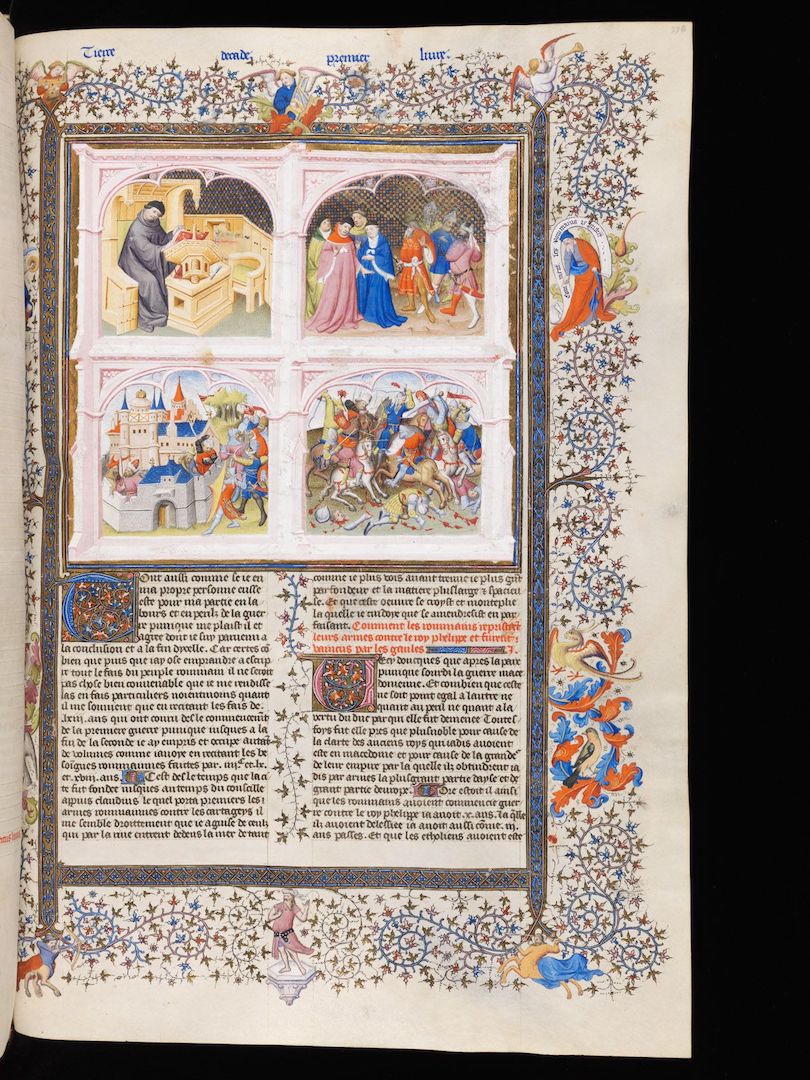 Tierce decade premier livre
Tout aussi comme se ie en
ma propre personne eusse
este pour ma partie en la
bours et en perilz de la guer
re punique me plaist il et
agree dont ie suy paruenu a
la conclusion et a la fin dycelle. Car certes co
bien que puis que iay ose emprandre a escrip
re tout le fais du peuple rommain il ne seroit
pas chose bien conuenable que ie me rendisse
las en fais particuliers nientmoins quant
il me souuient que en recitant les fais de
.lxiii. ans qui ont couru des le commencement
de la premiere guerre punique iusques a la
fin de la seconde ie ay empris et occupe autat
de volumes comme iauoye en recitant les be
soignes rommainnes faittes par
et xviii. ans. Cest des le temps que la ci
te fut fondee iusques au temps du conseille
appius claudius le quel porta premiers les
armes rommainnes contre les cartageys il
me semble droittement que ie aguise de ceulz
qui par la riue entrent dedens la mer de tant
comme ie plus vois auant treuue ie plus grat
parfondeur et la matiere plus large et spacieu
se. Et que ceste oeuure se croyst et monteplie
la quelle ie cuidoye que se amendresist en par
faisant. Comment les rommains repristrent
leurs armes contre le roy phelippe et furent
vaincus par les gaules .I.
doncques que apres la paix
punique sourdi la guerre mace
donienne. Et combien que ceste
ne soit point egal a lautre ne
quant au peril ne quant a la
vertu du duc par qui elle fut demenee Toutes
foys fut elle pres que plus noble pour cause de
la clarte des anciens roys qui iadis auoient
este en macedoine et pour cause de la grande
de leur empire par la quelle ilz obtindrent ia
dis par armes la plus grant partie dayse et de
grant partie deurope. Ore estoit il ainsi
que les rommains auoient commence guer
re contre le roy phelippe ia auoit .x. ans. la qlle
ilz auoient delessiee ia auoit aussi comme .iii.
ans passes. Et que les etholiens auoient este